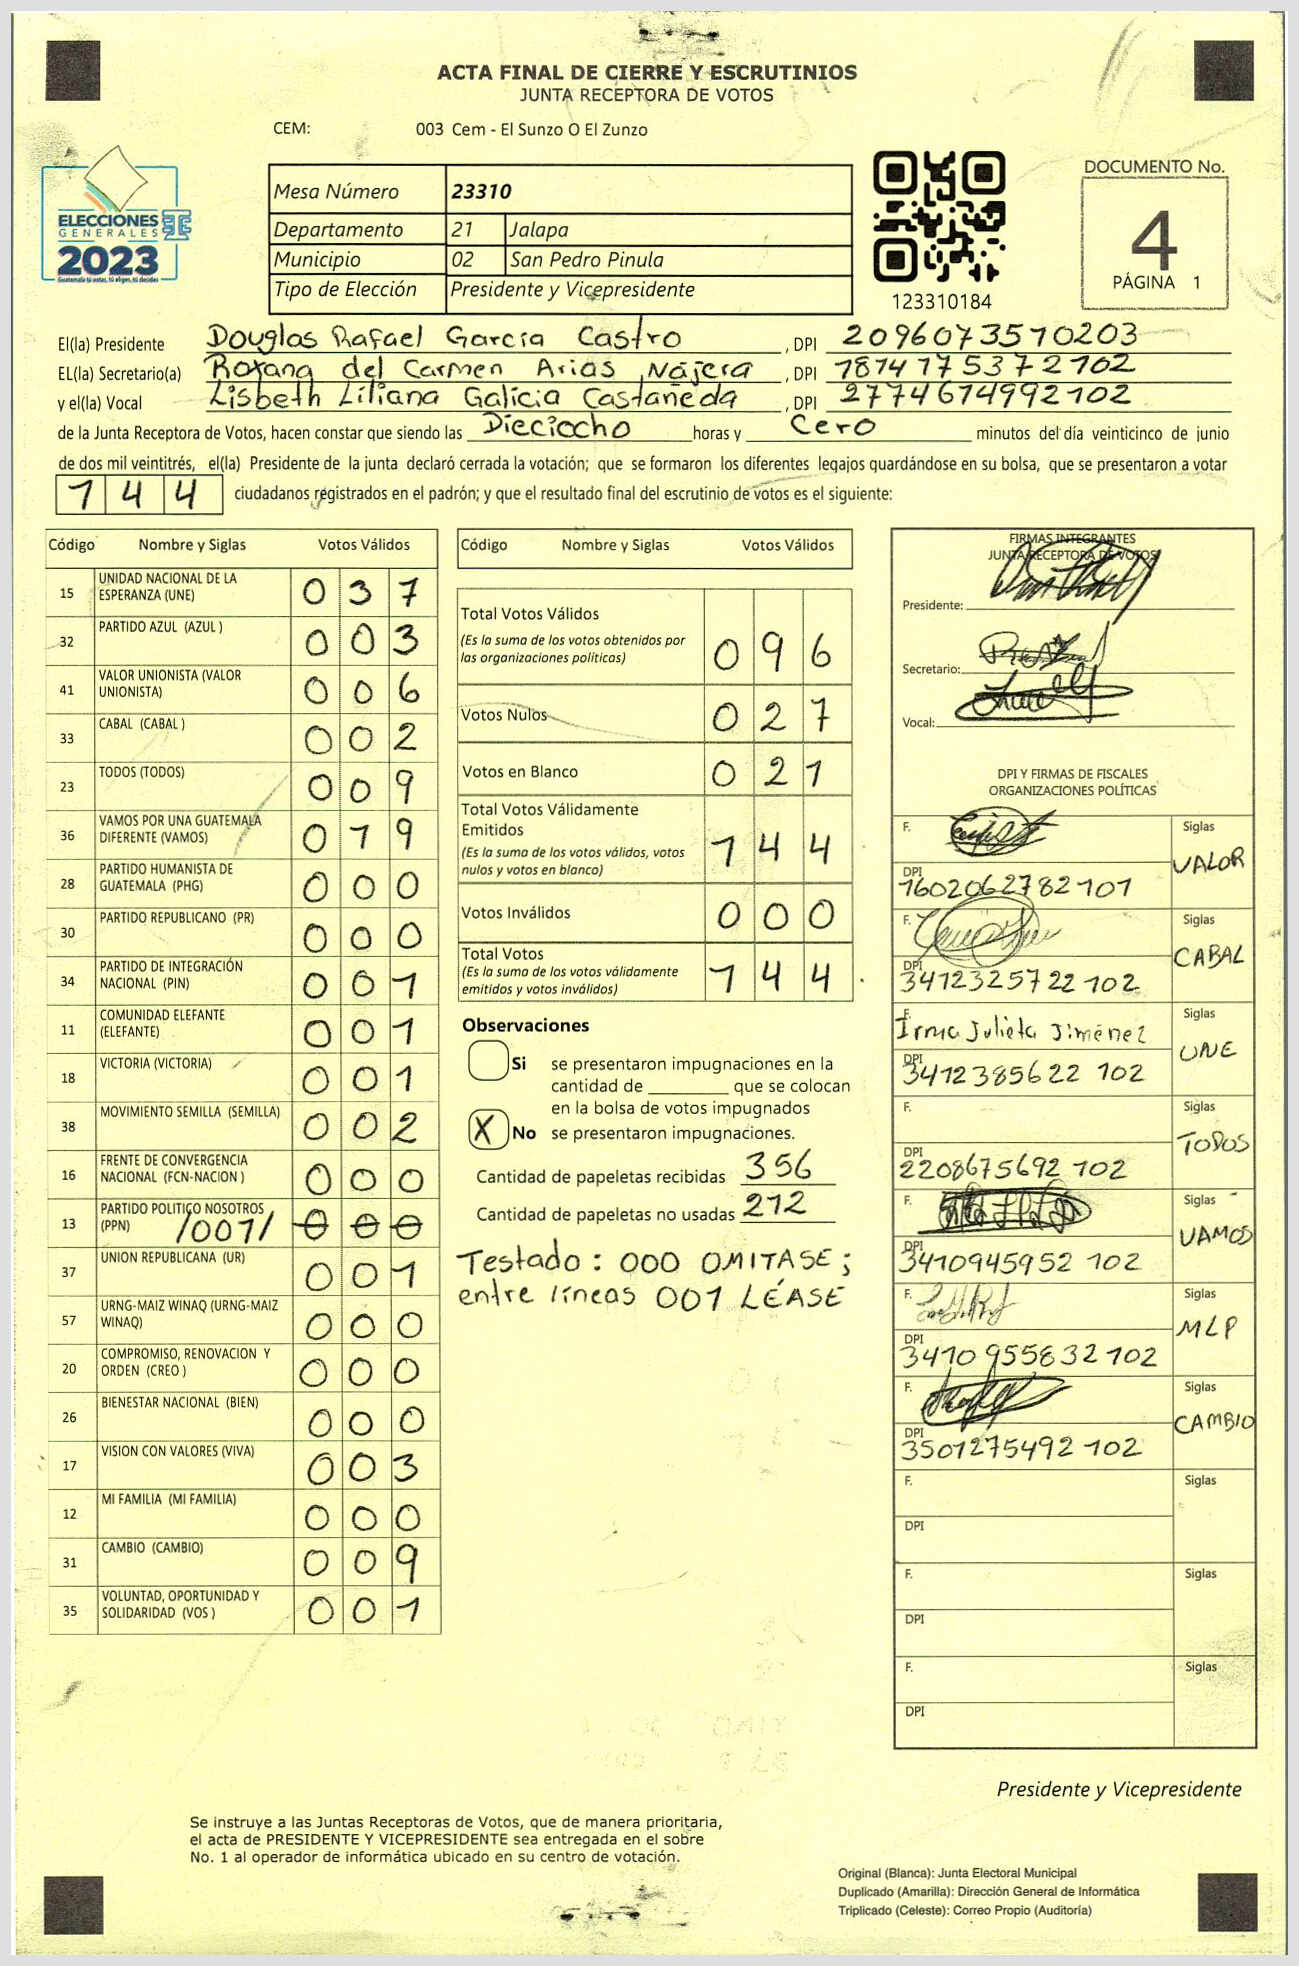 ACTA FINAL DE CIERRE Y ESCRUTINIOS
JUNTA RECEPTORA DE VOTOS
CEM: 003 Cem - El Sunzo O El Zunzo
ELECCIONES
GENERALES
2023
Mesa Número 23310
Departamento 21 Jalapa
Municipio 02 San Pedro Pinula
Tipo de Elección Presidente y Vicepresidente
123310184
DOCUMENTO No.
4
PÁGINA 1
El(la) Presidente Douglas Rafael García Castro , DPI 2096073510203
EL(la) Secretario(a) Roxana del Carmen Arias Nájera , DPI 1814175372102
y el(la) Vocal Lisbeth Liliana Galicia Castañeda , DPI 2774674992102
de la Junta Receptora de Votos, hacen constar que siendo las Dieciocho horas y Cero minutos del día veinticinco de junio
de dos mil veintitrés, el(la) Presidente de la junta declaró cerrada la votación; que se formaron los diferentes legajos guardándose en su bolsa, que se presentaron a votar
144 ciudadanos registrados en el padrón; y que el resultado final del escrutinio de votos es el siguiente:
Código Nombre y Siglas Votos Válidos
15 UNIDAD NACIONAL DE LA ESPERANZA (UNE) 037
32 PARTIDO AZUL (AZUL ) 003
41 VALOR UNIONISTA (VALOR UNIONISTA) 006
33 CABAL (CABAL ) 002
23 TODOS (TODOS) 009
36 VAMOS POR UNA GUATEMALA DIFERENTE (VAMOS) 019
28 PARTIDO HUMANISTA DE GUATEMALA (PHG) 000
30 PARTIDO REPUBLICANO (PR) 000
34 PARTIDO DE INTEGRACIÓN NACIONAL (PIN) 001
11 COMUNIDAD ELEFANTE (ELEFANTE) 001
18 VICTORIA (VICTORIA) 001
38 MOVIMIENTO SEMILLA (SEMILLA) 002
16 FRENTE DE CONVERGENCIA NACIONAL (FCN-NACION ) 000
13 PARTIDO POLITICO NOSOTROS (PPN) /001/ 000
37 UNION REPUBLICANA (UR) 001
57 URNG-MAIZ WINAQ (URNG-MAIZ WINAQ) 000
20 COMPROMISO, RENOVACION Y ORDEN (CREO ) 000
26 BIENESTAR NACIONAL (BIEN) 000
17 VISION CON VALORES (VIVA) 003
12 MI FAMILIA (MI FAMILIA) 000
31 CAMBIO (CAMBIO) 009
35 VOLUNTAD, OPORTUNIDAD Y SOLIDARIDAD (VOS ) 001
Código Nombre y Siglas Votos Válidos
Total Votos Válidos
(Es la suma de los votos obtenidos por
las organizaciones políticas) 096
Votos Nulos 027
Votos en Blanco 021
Total Votos Válidamente
Emitidos
(Es la suma de los votos válidos, votos
nulos y votos en blanco) 144
Votos Inválidos 000
Total Votos
(Es la suma de los votos válidamente
emitidos y votos inválidos) 144
Observaciones
Si se presentaron impugnaciones en la
cantidad de ________ que se colocan
en la bolsa de votos impugnados
X No se presentaron impugnaciones.
Cantidad de papeletas recibidas 356
Cantidad de papeletas no usadas 212
Testado: 000 OMITASE;
entre líneas 001 LÉASE
FIRMAS INTEGRANTES
JUNTA RECEPTORA DE VOTOS
Presidente:
Secretario:
Vocal:
DPI Y FIRMAS DE FISCALES
ORGANIZACIONES POLÍTICAS
F. Siglas
DPI 1602062782101 VALOR
F. Siglas
DPI 3412325722102 CABAL
F. Irma Julieta Jiménez Siglas
DPI 3412385622 102 UNE
F. Siglas
DPI 2208675692 102 TODOS
F. Siglas
DPI 3410945952 102 VAMOS
F. Siglas
DPI 3410955832102 MLP
F. Siglas
DPI 3501275492102 CAMBIO
F. Siglas
DPI
F. Siglas
DPI
F. Siglas
DPI
Presidente y Vicepresidente
Se instruye a las Juntas Receptoras de Votos, que de manera prioritaria,
el acta de PRESIDENTE Y VICEPRESIDENTE sea entregada en el sobre
No. 1 al operador de informática ubicado en su centro de votación.
Original (Blanca): Junta Electoral Municipal
Duplicado (Amarilla): Dirección General de Informática
Triplicado (Celeste): Correo Propio (Auditoría)